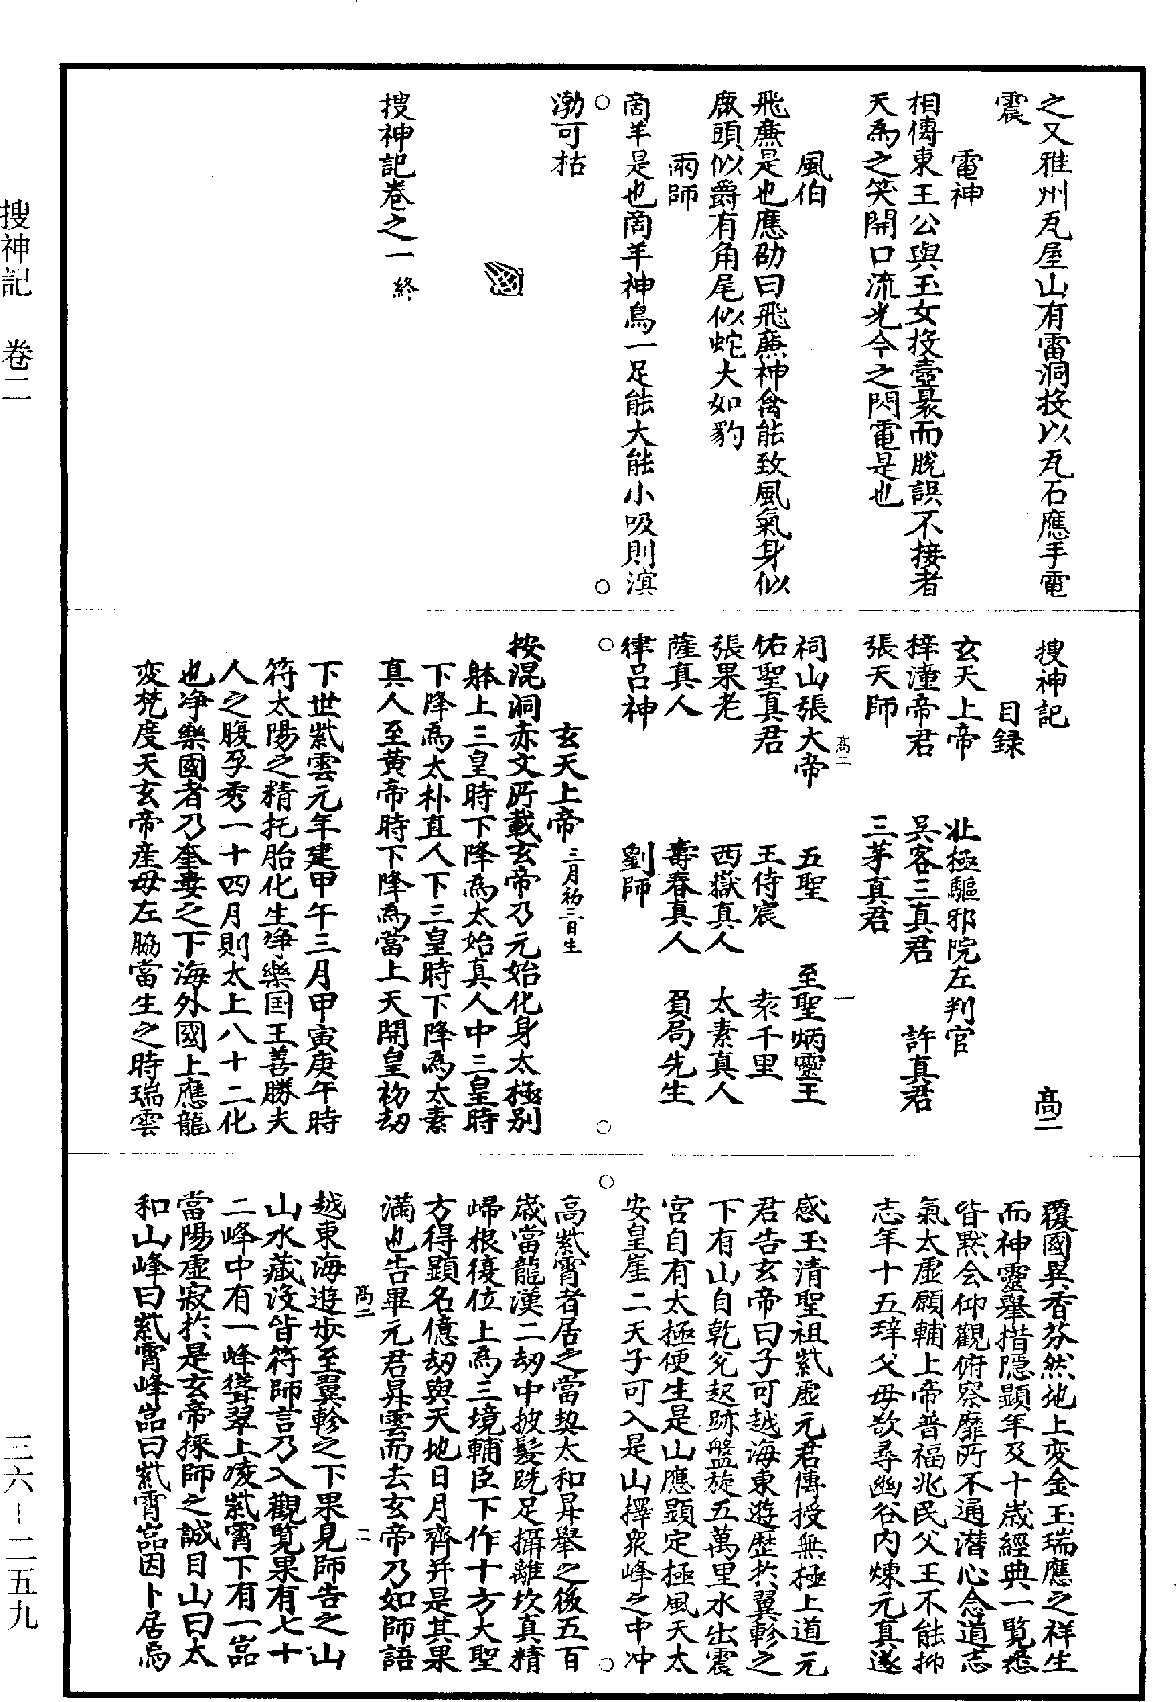 之又雅州瓦屋山有雷洞投以瓦石應手電
震
電神
相傳東王公與玉女投壺裊而脫誤不接者
天為之笑開口流光今之閃電是也
風伯
飛廉是也應劭曰飛廉神禽能致風氣身似
鹿頭似爵有角尾似蛇大如豹
雨師
商羊是也商羊神鳥一足能大能小吸則溟
渤可枯
搜神記卷之一終
搜神記
高二
目録
玄天上帝 北極驅邪院左判官
梓潼帝君 吳客三真君 許真君
張天師 三茅真君
高二 一
祠山張大帝 五聖 至聖炳靈王
佑聖真君 王侍宸 袁千里
張果老 西嶽真人 太素真人
薩真人 壽春真人 負局先生
律呂神 劉師
玄天上帝三月初三日生
按混洞赤文所載玄帝乃元始化身太極别
躰上三皇時下降為太始真人中三皇時
下降為太朴真人下三皇時下降為太素
真人至黄帝時下降為當上天開皇初劫
下世紫雲元年建甲午三月甲寅庚午時
符太陽之精托胎化生浄樂国王善勝夫
人之腹孕秀一十四月則太上八十二化
也浄樂國者乃奎婁之下海外國上應龍
変梵度天玄帝産母左脇當生之時瑞雲
覆國異香芬然地上変金玉瑞應之祥生
而神靈舉措隠顯年及十歲經典一覧悉
皆黙会仰觀俯察靡所不通潜心念道志
氣太虚願輔上帝普福兆民父王不能抑
志年十五辝父母欲尋幽谷内煉元真遂
感玉清聖祖紫虚元君傳授無極上道元
君告玄帝曰子可越海東遊歴於翼軫之
下有山自乾兊起跡盤旋五萬里水出震
宮自有太極便生是山應顯定極風天太
安皇崖二天子可入是山擇衆峰之中冲
高紫霄者居之當契太和昇舉之後五百
歲當龍漢二劫中披髮跣足攝離坎真精
歸根復位上為三境輔臣下作十方大聖
方得顯名億劫與天地日月齊并是其果
滿也告畢元君昇雲而去玄帝乃如師語
高二 二
越東海遊步至翼軫之下果見師告之山
山水藏没皆符師言乃入觀覧果有七十
二峰中有一峰聳翠上凌紫霄下有一嵓
當陽虚寂於是玄帝採師之誡目山曰太
和山峰曰紫霄峰嵓曰紫霄嵓因卜居焉
搜神記 卷二
三六-二五九